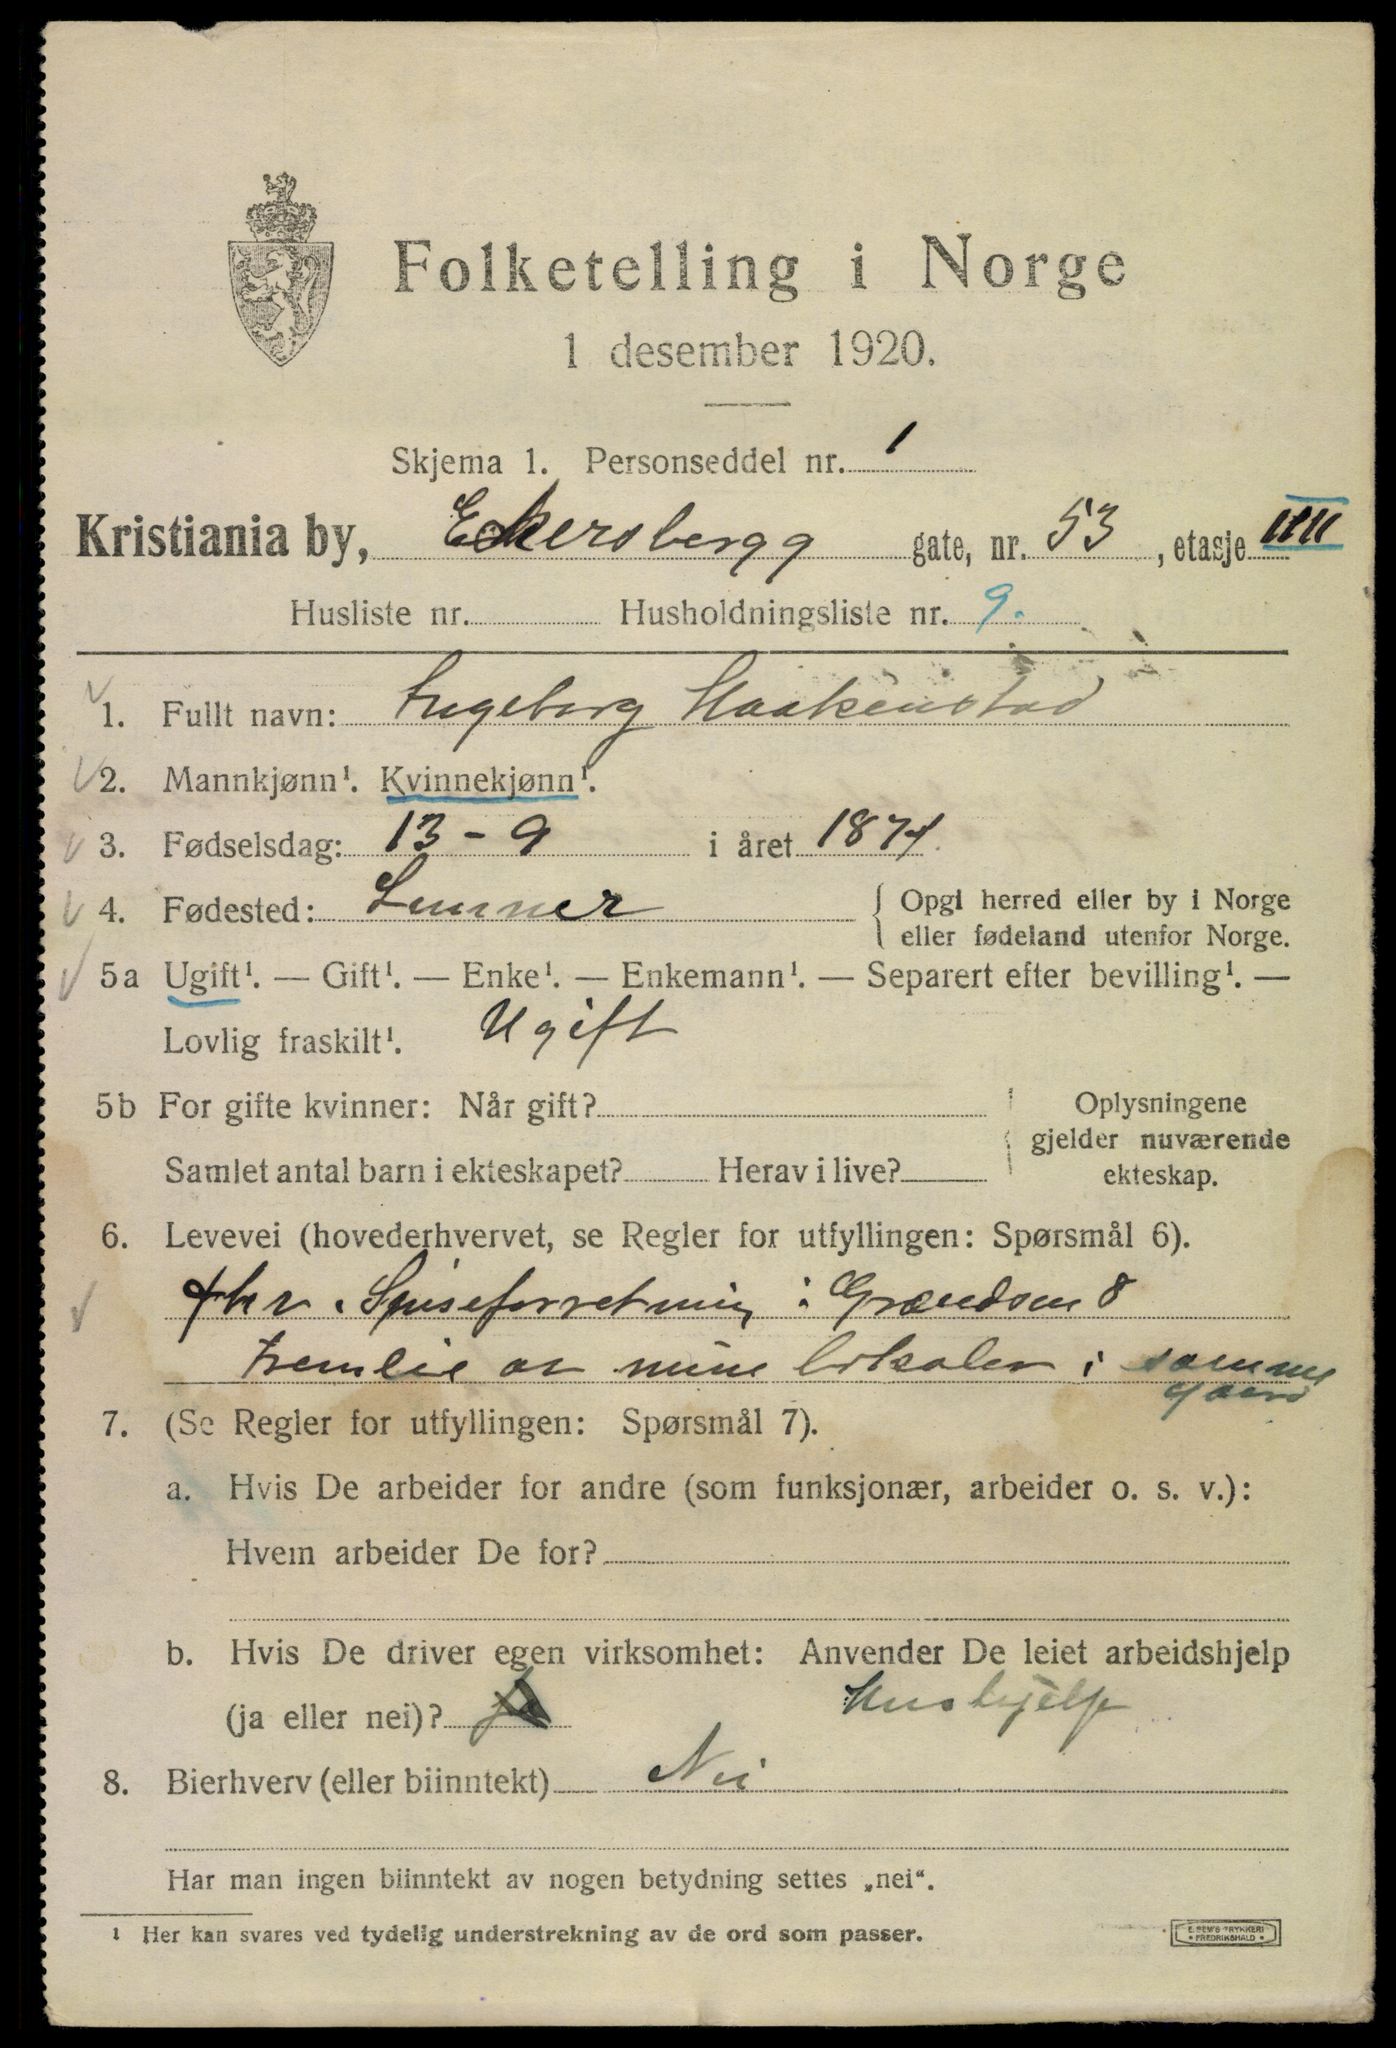 Folketelling i Norge
1 desember 1920.
Skjema 1. Personseddel nr. 1
Kristiania by, Eckersbergg gate, nr. 53, etasje IIII
Husliste nr. Husholdningsliste nr. 9.
1. Fullt navn: Ingeborg Haakenstad
2. Mannkjønn¹. Kvinnekjønn¹.
3. Fødselsdag: 13 - 9 i året 1874.
4. Fødested: Lunner { Opgi herred eller by i Norge
eller fødeland utenfor Norge.
5a Ugift¹. — Gift¹. — Enke¹. — Enkemann¹. — Separert efter bevilling¹. —
Lovlig fraskilt¹. Ugift
5b For gifte kvinner: Når gift? Oplysningene
gjelder nuværende
Samlet antal barn i ekteskapet? Herav i live? ekteskap.
6. Levevei (hovederhvervet, se Regler for utfyllingen: Spørsmål 6).
Spiseforretning i Grændsen 8
Fremleie av mine lokaler i samme
gaard
7. (Se Regler for utfyllingen: Spørsmål 7).
a. Hvis De arbeider for andre (som funksjonær, arbeider o. s. v.):
Hvem arbeider De for?
b. Hvis De driver egen virksomhet: Anvender De leiet arbeidshjelp
(ja eller nei)? Ja Hushjelp
8. Bierhverv (eller biinntekt) Nei
Har man ingen biinntekt av nogen betydning settes „nei“.
¹ Her kan svares ved tydelig understrekning av de ord som passer.
E. SEM'S TRYKKERI
• FREDRIKSHALD •